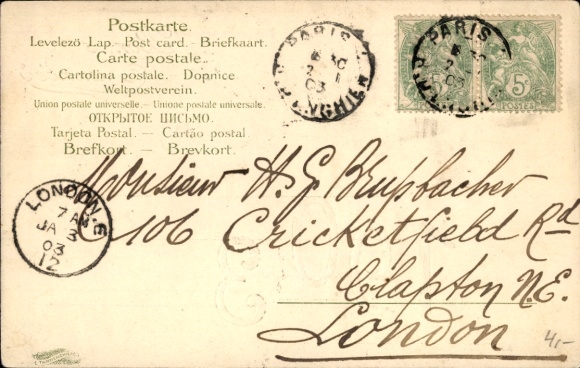 Postkarte.
Levelező Lap. - Post card. - Briefkaart.
Carte postale.
Cartolina postale. Dopisnice
Weltpostverein.
Union postale universelle. - Unione postale universale.
ОТКРЫТОЕ ПИСЬМО.
Tarjeta Postal. - Cartão postal.
Brefkort. - Brevkort.
PARIS
30
03
PARIS
5c
POSTES
LONDON. E
7 AM
JA 3
03
12
Monsieur H. G. Brupbacher
106 Cricketfield Rd
Clapton N.E.
London
4,-